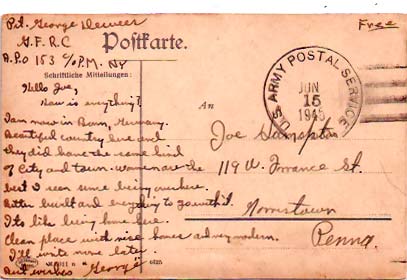 Pvt. George Deweer
G.F.R.C
A.P.O 153 c/o P.M. NY
Free
Postkarte.
Schriftliche Mitteilungen:
U.S. ARMY POSTAL SERVICE
JUN
15
1945
An
Hello Joe,
How is everything?
I am now in Bonn, Germany.
Beautiful country here and
they did have the same kind
of City and town.
but I seen some being
Better built and everything to go with it.
Its like being home here.
Clean place with nice homes and very modern.
I'll write more later.
Best wishes George
Joe
119 W. Torrance St.
Norristown
Penna.